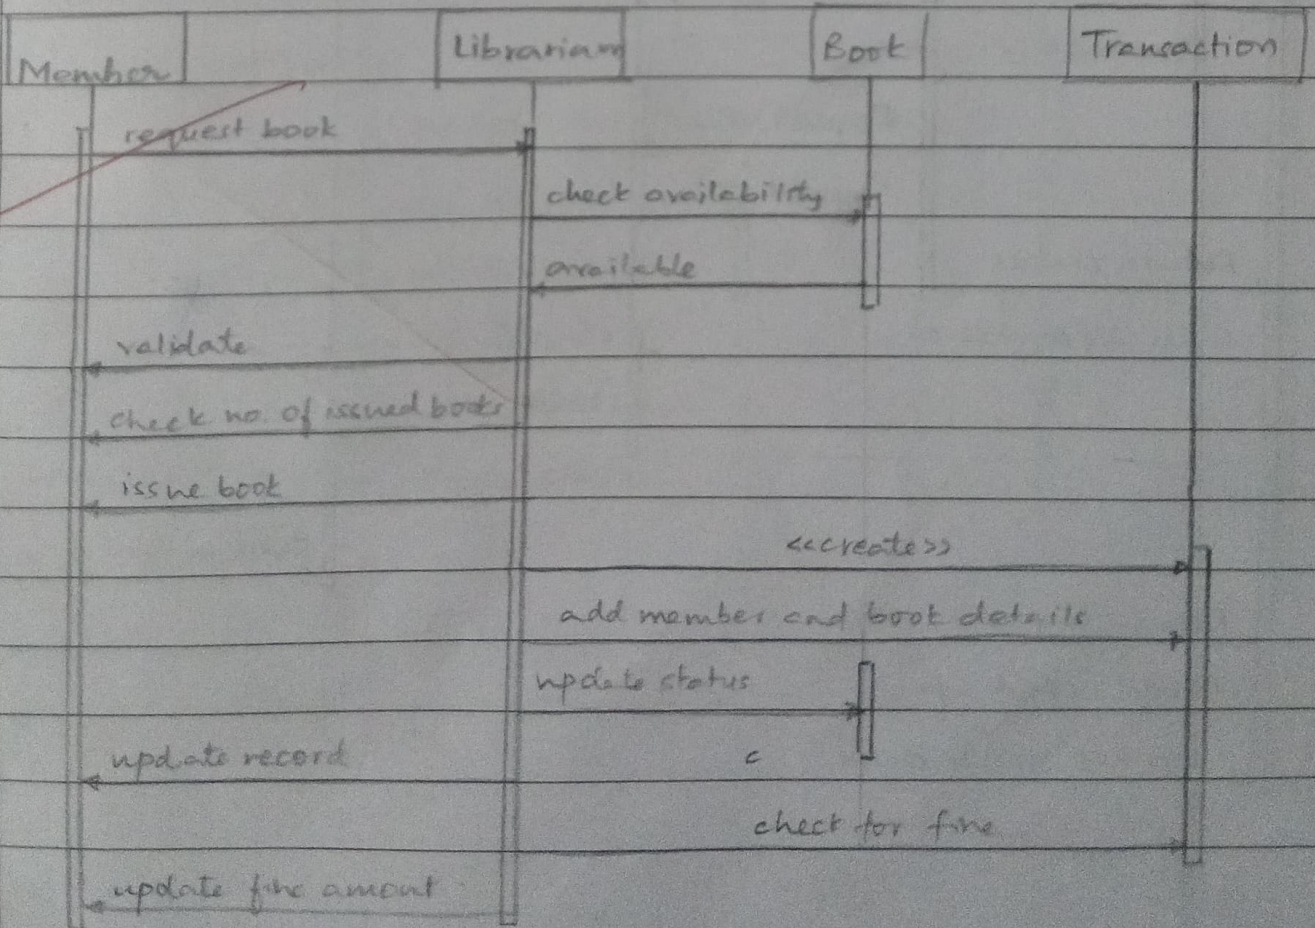 Member
Librariam
Book
Transaction
request book
check availability
available
validate
check no. of issued books
issue book
<<create>>
add member and book details
update status
update record
c
check for fine
update fine amount